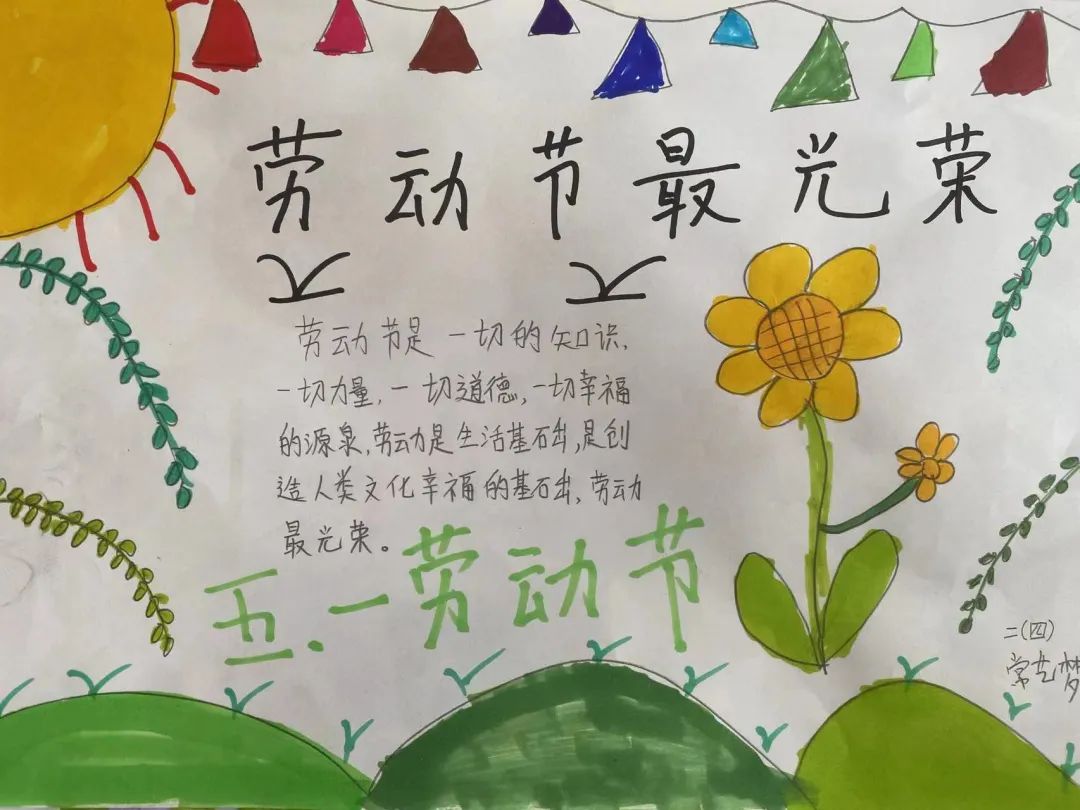 劳动节最光荣
劳动节是一切的知识,
一切力量,一切道德,一切幸福
的源泉,劳动是生活基础,是创
造人类文化幸福的基础,劳动
最光荣。
五.一劳动节
二(四)
常艺梦